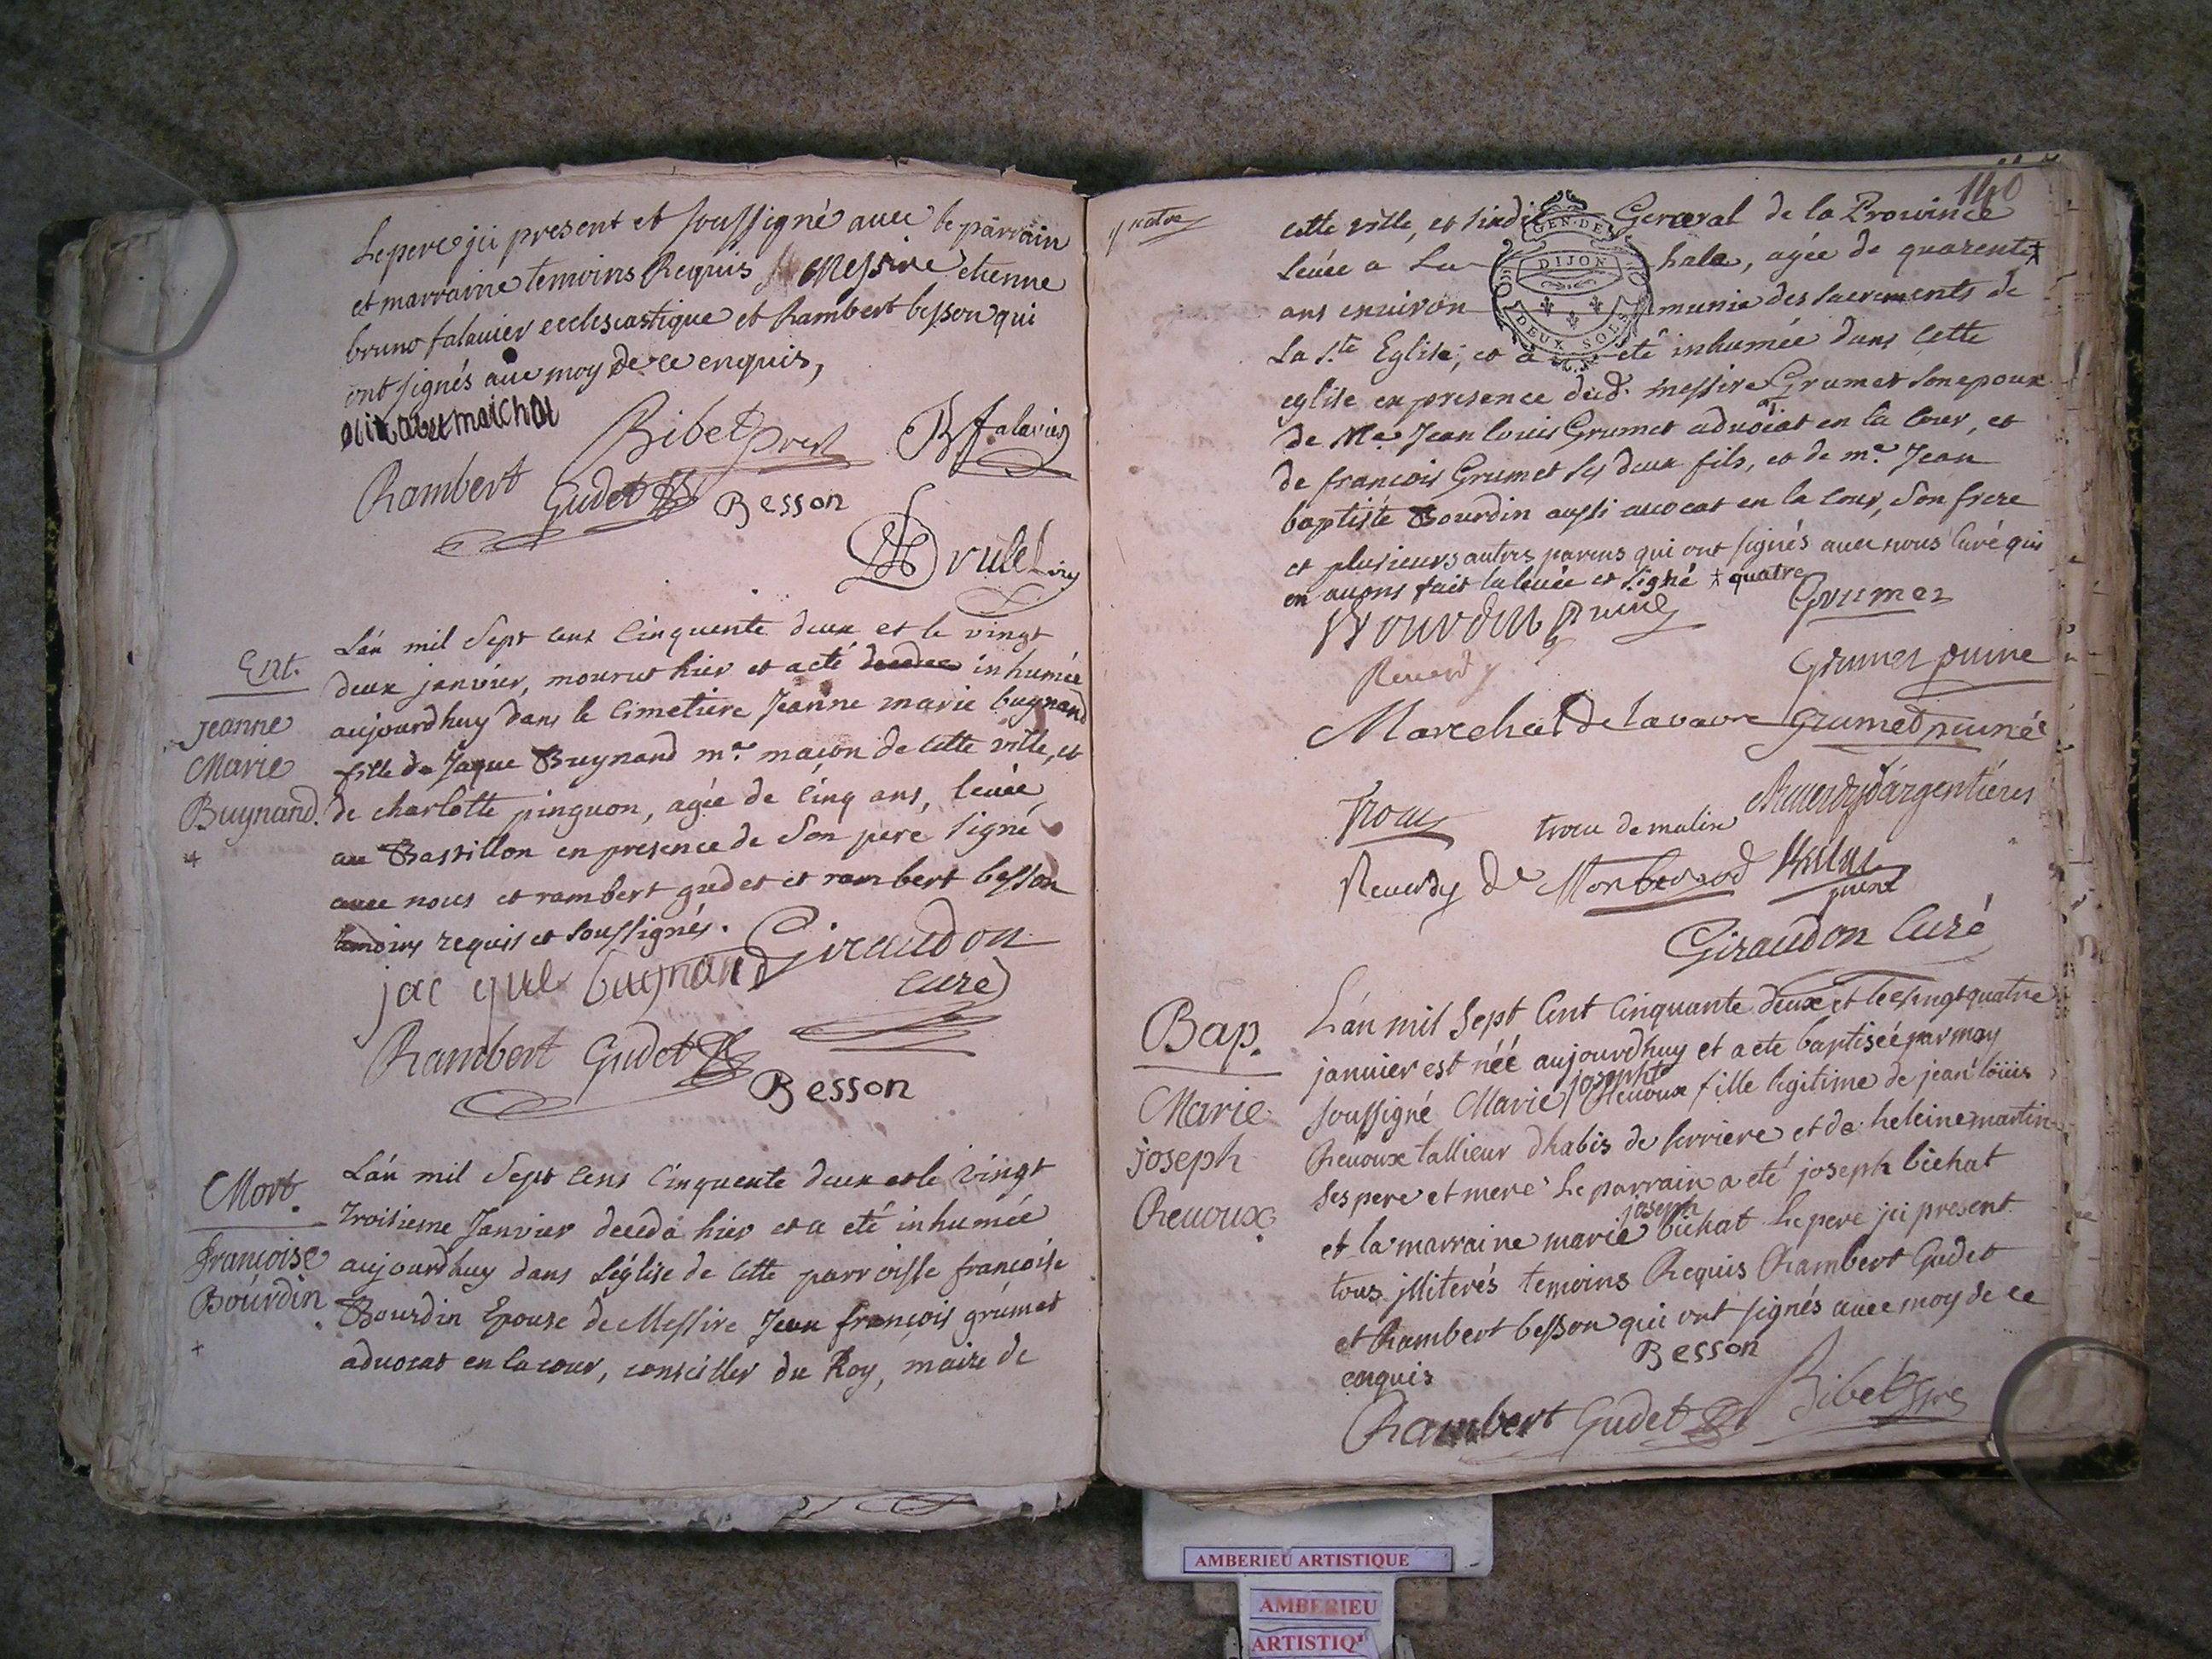 Le pere ici present et soussigné avec le parrain
et marraine temoins Requis Messire etienne
bruno falavier ecclesiastique et Rambert besson qui
ont signés avec moy de ce enquis,
Ribet
falavier
Rambert Gudet
Besson
Ent.
Jeanne
Marie
Buynand.
L'an mil sept cens Cinquente deux et le vingt
deux janvier, mourut hier et a eté inhumée
aujourdhuy dans le Cimetiere Jeanne marie buynand
fille de Jaque Buynand me. macon de cette ville, et
de charlotte pinguon, agée de Cinq ans, levée
au Bastillon en presence de Son pere signé
avec nous et rambert gudet et rambert besson
temoins requis et soussignés.
Giraudon
curé
jacque buynand
Rambert Gudet
Besson
Mort.
françoise
Bourdin
L'an mil Sept Cens Cinquente deux et le vingt
troisieme Janvier deceda hier et a eté inhumée
aujourdhuy dans L'église de cette parroisse francoise
Bourdin Epouse de Messire Jean françois grumet
advocat en la cour, conseiller du Roy, maire de
140
quatre
cette ville, et sindic General de la Province
levée a La hale, agée de quarente
ans environ munie des sacrements de
La Ste Eglise, et a eté inhumée dans cette
GEN. DE
DIJON
DEUX SOLS
eglise en presence dud. messire Grumet son epoux
de Me Jean louis Grumet advocat en la Cour, et
de francois Grumet ses deux fils, et de me. Jean
baptiste Bourdin aussi avocat en la Cour, Son frere
et plusieurs autres parens qui ont signés avec nous Curé qui
en avons fait la levée et signé quatre
Bourdin puiné
Grumet
Reverdy
Grumet puiné
Marechal de lavavre Grumet puiné
Trocu
trocu de malix
Reverdy d'argentières
Reverdy de Monbernod
puiné
Giraudon Curé
Bap.
Marie
joseph
Revoux.
L'an mil Sept Cent Cinquante deux et le vingt quatre
janvier est néé aujourdhuy et a ete baptiseé par moy
joseph
soussigné Marie Revoux fille legitime de jean loüis
Revoux tallieur dhabis de serriere et de heleine martin
Ses pere et mere Le parrain a eté joseph bichat
joseph
et la marraine marie bichat Le pere ici present
tous illiterés temoins Requis Rambert Gudet
et Rambert besson qui ont signés avec moy de ce
enquis
Besson
Rambert Gudet
Ribet
AMBERIEU ARTISTIQUE
AMBERIEU
ARTISTIQ